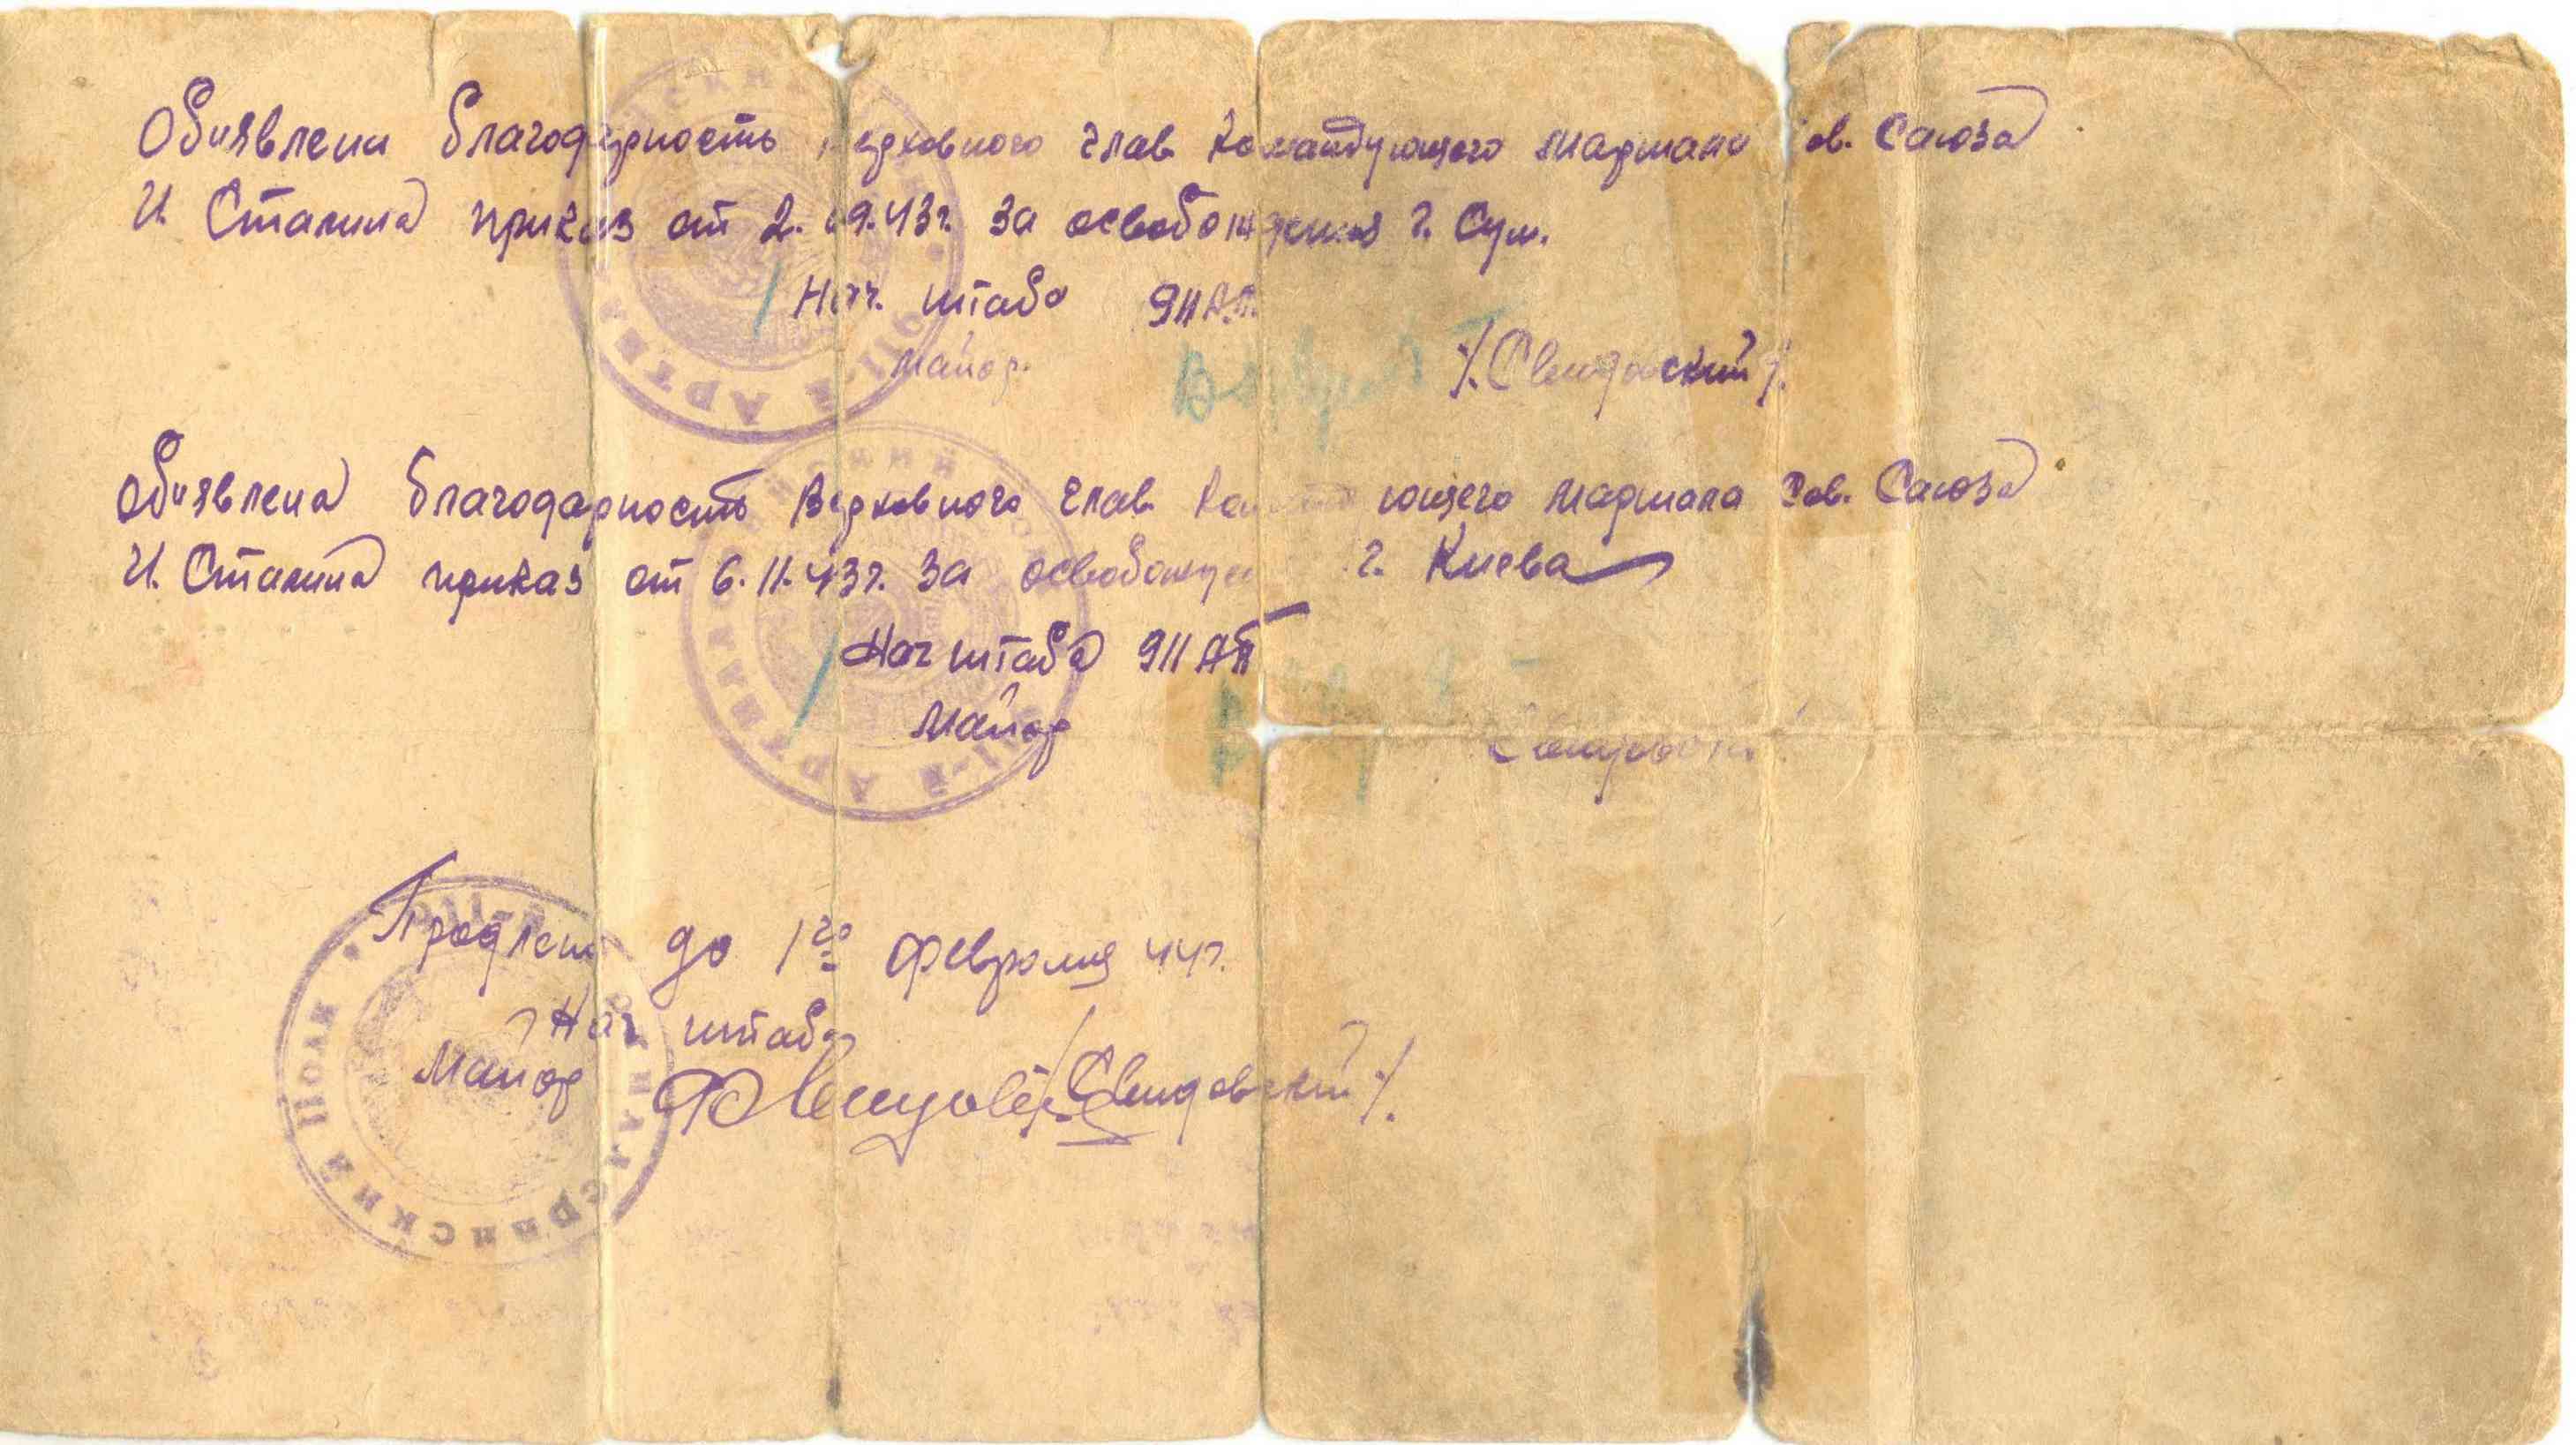 Обиявлена благодарность ерховного глав Командующего маршала ов. Саюза
И. Сталина приказ от 2. 09.43г. за освобождения г. Сум.
Нач. штаба 911 А.П.
майор.
/.Свидовский/.
Обиявлена благодарность Верховного глав ющего маршала Сов. Саюза
И. Сталина приказ от 6.11.43г. за г. Киева
Нач штаба 911 АП
Майор
Продлен до 1го февраля 44г.
Нач штаба
Майор /Свидовский/.